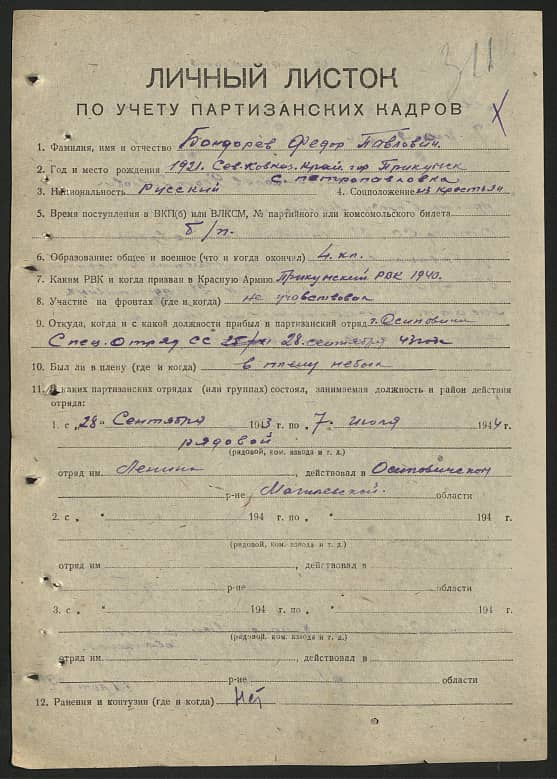 311
ЛИЧНЫЙ ЛИСТОК
ПО УЧЕТУ ПАРТИЗАНСКИХ КАДРОВ
1. Фамилия, имя и отчество Бондорев Федор Павлович.
2. Год и место рождения 1921. Сев. Кавказ. Край. гор Прикумск
с. Петропавловка
3. Национальность Русский 4. Соцположение из крестьян
5. Время поступления в ВКП(б) или ВЛКСМ, № партийного или комсомольского билета
б/п.
6. Образование: общее и военное (что и когда окончил) 4. кл.
7. Каким РВК и когда призван в Красную Армию Прикумский РВК 1940.
8. Участие на фронтах (где и когда) не учавствовал
9. Откуда, когда и с какой должности прибыл в партизанский отряд г. Осиповичи
Спец. Отряд СС 28 сентября 43 года
10. Был ли в плену (где и когда) в плену небыл
11. В каких партизанских отрядах (или группах) состоял, занимаемая должность и район действия
отряда:
1. с „28“ Сентября 1943 г. по „7. июля 1944 г.
рядовой
(рядовой, ком. взвода и т. д.)
отряд им. Ленина, действовал в Осиповичском
р-не Могилевской. области
2. с „ “ 194 г. по „ “ 194 г.
(рядовой, ком. взвода и т. д.)
отряд им. , действовал в
р-не области
3. с „ “ 194 г. по „ “ 194 г.
(рядовой, ком. взвода и т. д.)
отряд им. , действовал в
р-не области
12. Ранения и контузии (где и когда) Нет